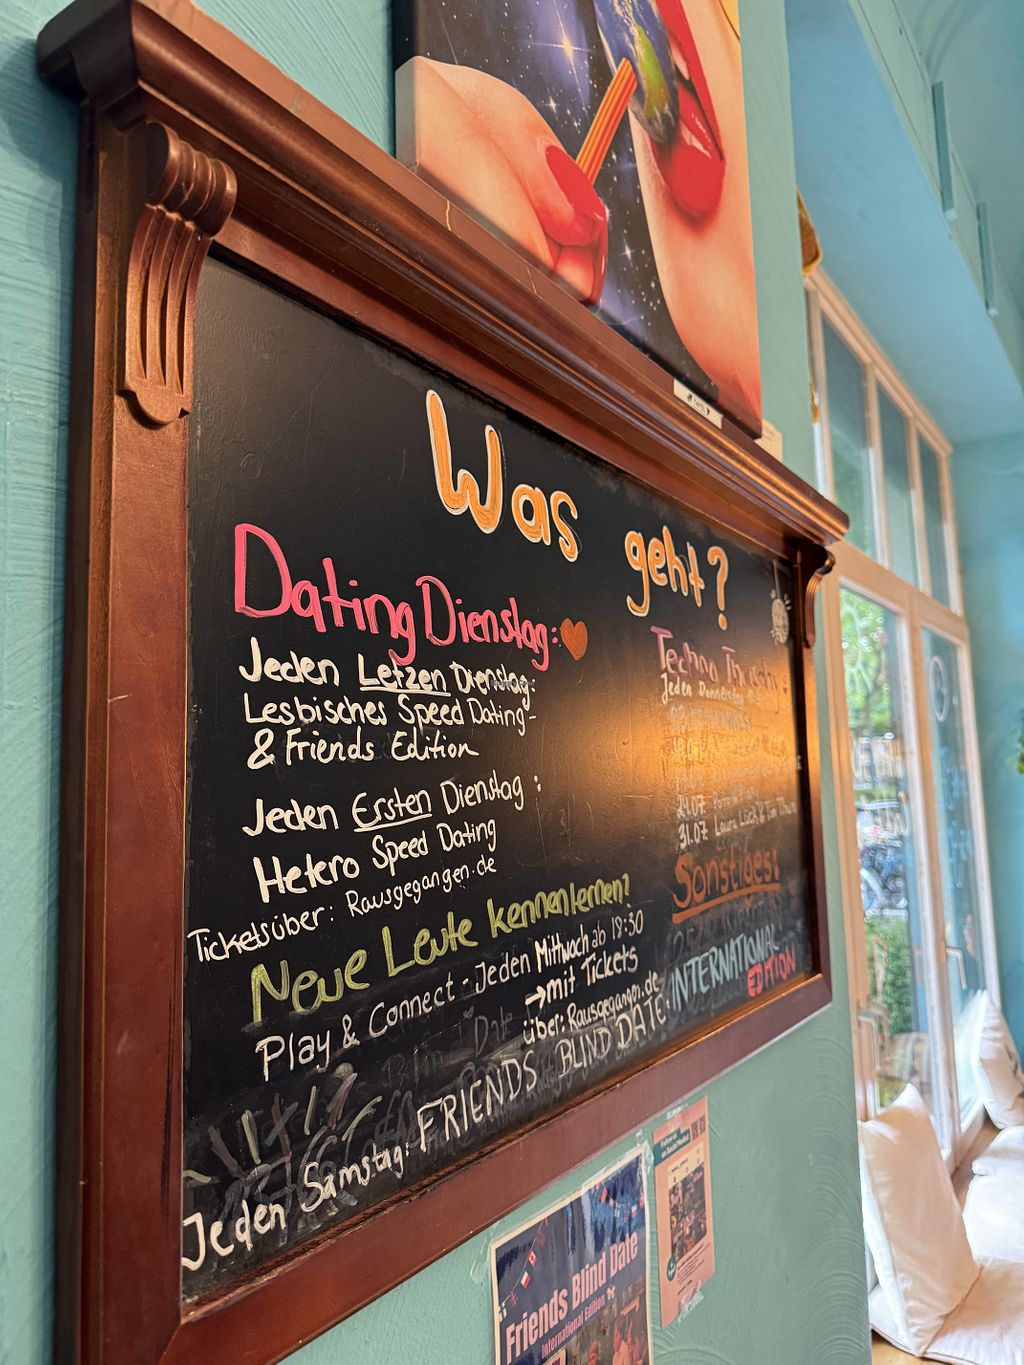 Was geht?
Dating Dienstag:
Jeden Letzen Dienstag:
Lesbisches Speed Dating-
& Friends Edition
Jeden Ersten Dienstag:
Hetero Speed Dating
Tickets über: Rausgegangen.de
Neue Leute kennenlernen?
Play & Connect - Jeden Mittwoch ab 18:30
→ mit Tickets
über: Rausgegangen.de
Jeden Samstag: FRIENDS BLIND DATE:
INTERNATIONAL
EDITION
Techno Thursday:
Jeden Donnerstag
24.07
31.07 Laura Lück & Tim Thura
Sonstiges:
Friends Blind Date
International Edition